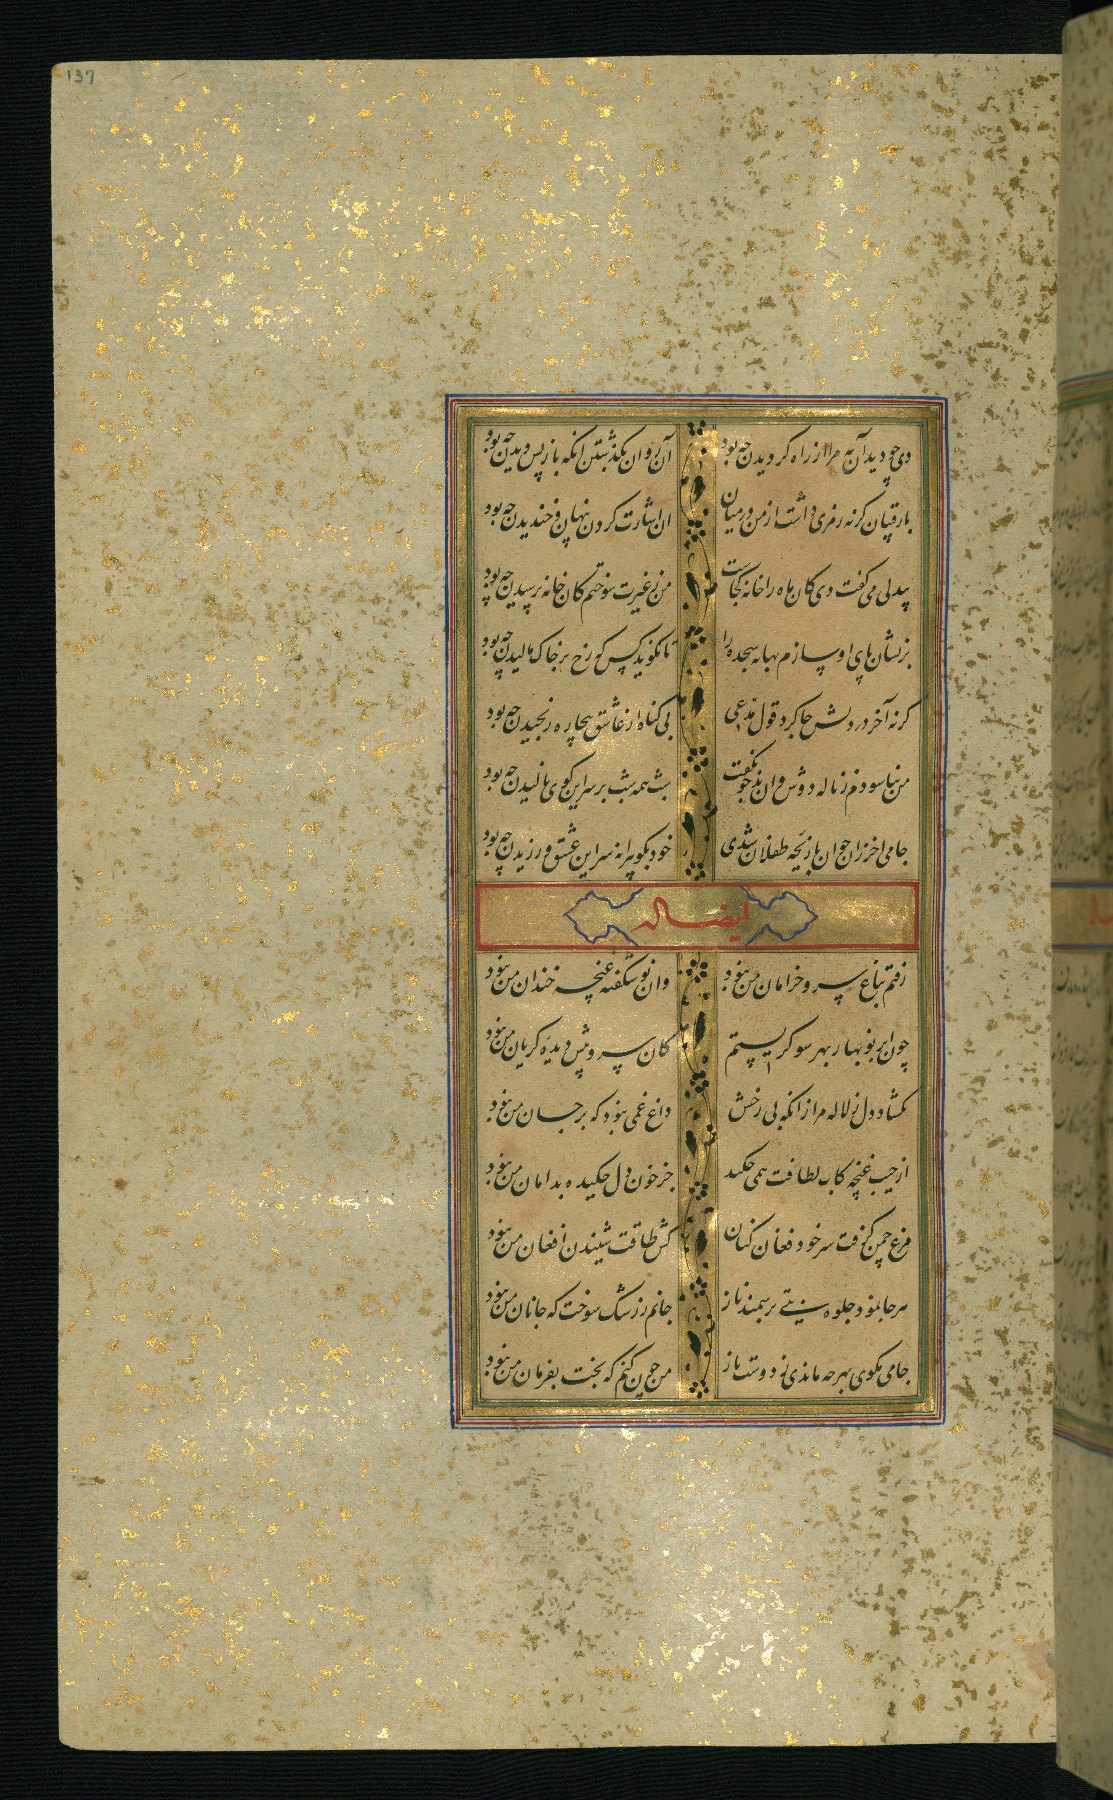 137
دی چو دید آن مه مرا از راه کردیدن چه بود
آن روان بگذشتن آنکه باز پس دیدن چه بود
با رقیبان کر نه رمزی داشت از من در میان
ان اشارت کردن پنهان و خندیدن چه بود
بیدلی می گفت دی کان ماه را خانه کجاست
من ز غیرت سوختم کان خانه پرسیدن چه بود
بر نشان پای او سازم بهانه سجده را
تا نکوید کس که رخ بر خاک مالیدن چه بود
کر نه آخر در دلش جا کرد قول مدعی
بی کناه از عاشق بیچاره رنجیدن چه بود
من نیاسودم ز ناله دوش وان بدخو نکفت
شب همه شب بر سر این کوی نالیدن چه بود
جامی اخر زان جوان بازیچه طفلان شدی
خود بکو پیرانه سر این عشق ورزیدن چه بود
ایضا له
رفتم بباغ سرو خرامان من نبود
وان نو شکفته غنچه خندان من نبود
چون ابر نوبهار بهر سو کریستم
کان سرو پیش دیده کریان من نبود
نکشاد دل ز لاله مرا زانکه بی رخش
داغ غمی نبود که بر جان من نبود
از جیب غنچه کاب لطافت همی چکید
جز خون دل چکیده بدامان من نبود
مرغ چمن کرفت سر خود فغان کنان
کش طاقت شنیدن افغان من نبود
هر جا نمود جلوه بتی بر سمند ناز
جانم ز رشک سوخت که جانان من نبود
جامی مکوی بهر چه ماندی ز دوست باز
من چون کنم که بخت بفرمان من نبود